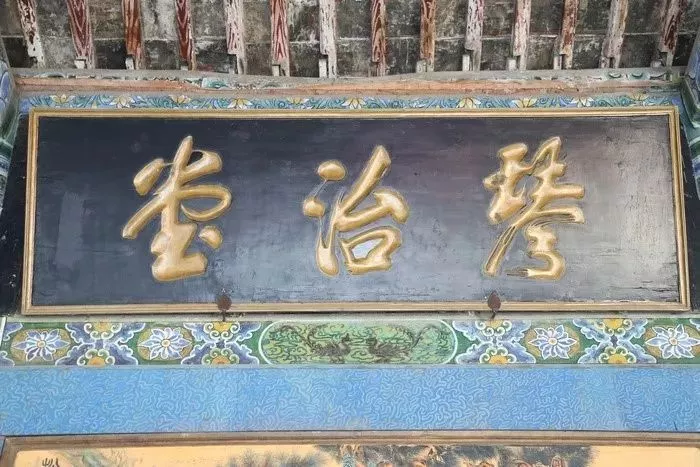 琴治堂